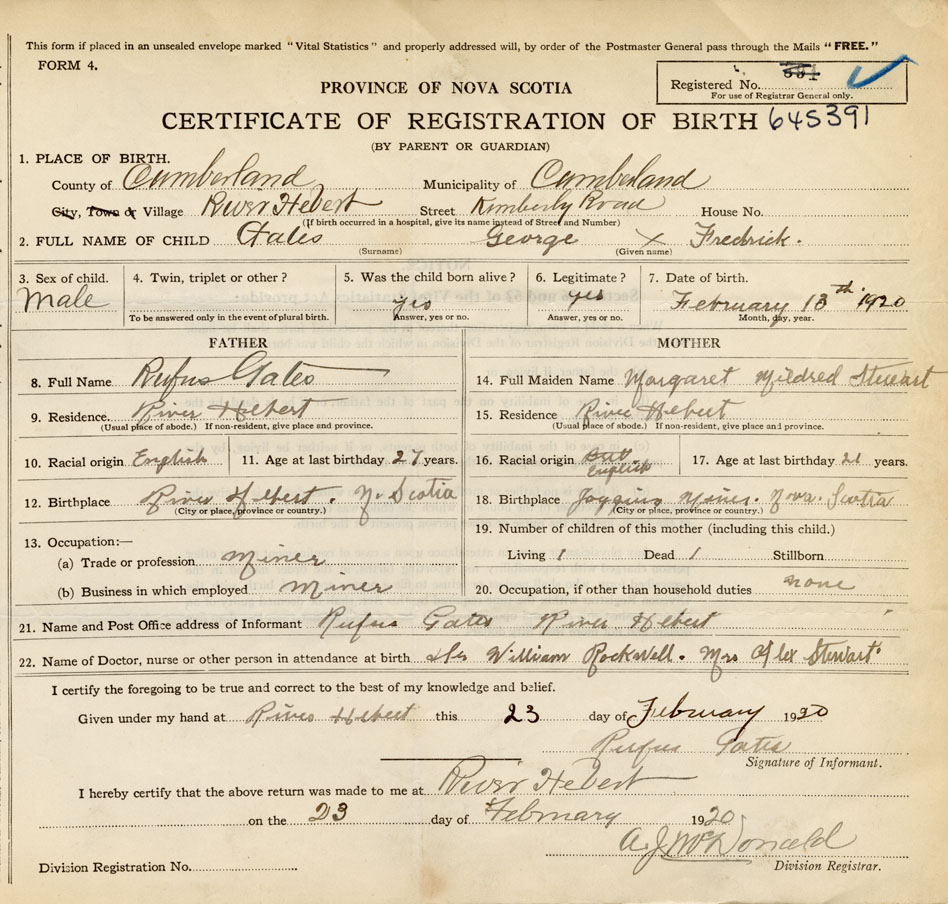 This form if placed in an unsealed envelope marked "Vital Statistics" and properly addressed will, by order of the Postmaster General pass through the Mails "FREE."
FORM 4.
Registered No. 391
For use of Registrar General only.
PROVINCE OF NOVA SCOTIA
CERTIFICATE OF REGISTRATION OF BIRTH 645391
(BY PARENT OR GUARDIAN)
1. PLACE OF BIRTH.
County of Cumberland Municipality of Cumberland
City, Town or Village River Hebert Street Kimberly Road House No.
(If birth occurred in a hospital, give its name instead of Street and Number)
2. FULL NAME OF CHILD Gates George X Fredrick.
(Surname) (Given name)
3. Sex of child. 4. Twin, triplet or other? 5. Was the child born alive? 6. Legitimate? 7. Date of birth.
Male yes yes February 13th 1920
To be answered only in the event of plural birth. Answer, yes or no. Answer, yes or no. Month, day, year.
FATHER MOTHER
8. Full Name Rufus Gates 14. Full Maiden Name Margaret Mildred Stewart
9. Residence. River Hebert 15. Residence River Hebert
(Usual place of abode.) If non-resident, give place and province. (Usual place of abode.) If non-resident, give place and province.
10. Racial origin English 11. Age at last birthday 27 years. 16. Racial origin English 17. Age at last birthday 21 years.
12. Birthplace River Hebert. N. Scotia 18. Birthplace Joggins Mines. Nova. Scotia
(City or place, province or country.) (City or place, province or country.)
13. Occupation:— 19. Number of children of this mother (including this child.)
(a) Trade or profession miner Living 1 Dead 1 Stillborn
(b) Business in which employed miner 20. Occupation, if other than household duties none
21. Name and Post Office address of Informant Rufus Gates River Hebert
22. Name of Doctor, nurse or other person in attendance at birth William Rockwell. Mrs Alex Stewart
I certify the foregoing to be true and correct to the best of my knowledge and belief.
Given under my hand at River Hebert this 23 day of February 1920
Rufus Gates
Signature of Informant.
I hereby certify that the above return was made to me at River Hebert
on the 23 day of February 1920
A. J. McDonald
Division Registration No. Division Registrar.